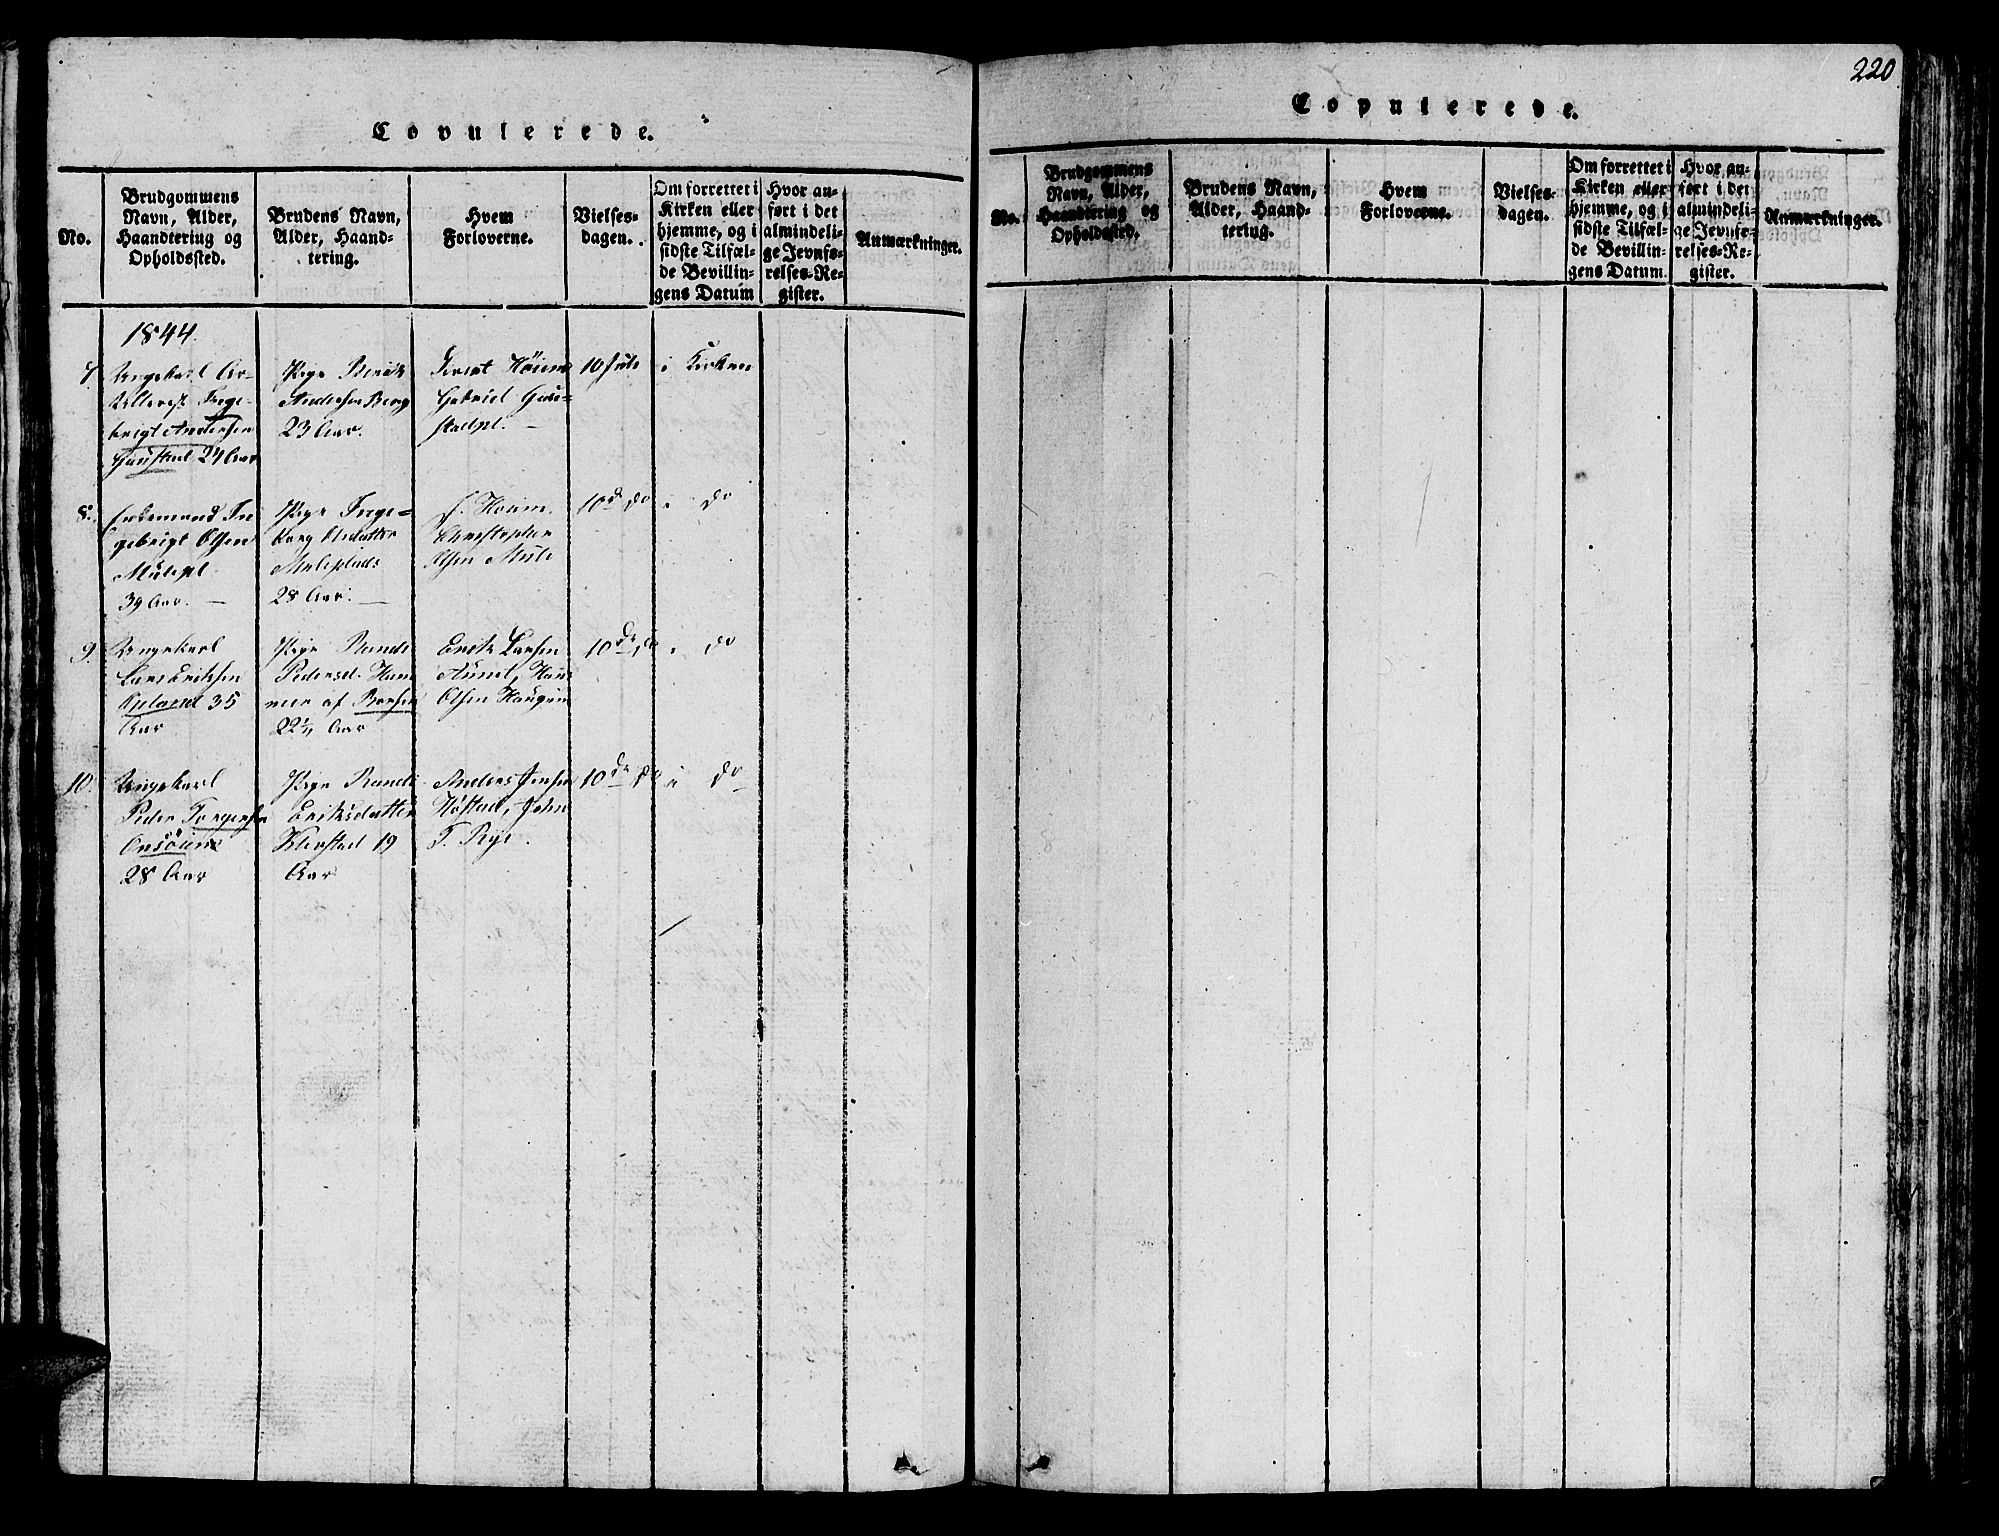 220
Copulerede.
No.
Brudgommens
Navn, Alder,
Haandtering og
Opholdssted.
Brudens Navn,
Alder, Haand-
tering.
Hvem
Forloverne.
Vielses-
dagen.
Om forrettet i
Kirken eller
hjemme, og i
sidste Tilfæl-
de Bevillin-
gens Datum
Hvor an-
ført i det
almindeli-
ge Jevnfø-
relses-Re-
gister.
Anmærkninger.
1844.
7.
Ungekarl Ar-
Inge-
brigt Andersen
Gaustad 24 Aar
Pige Berit
Andersen Berg
23 Aar.
Høium
Gabriel Gau-
stadpl. -
10 Juli
i Kirken
8.
Enkemand In-
gebrigt Olsen
Mulepl.
39 Aar. -
Pige Inge-
borg
Muleplads
28 Aar. -
Høium
Christopher
Olsen Mule
10 do
i do
9.
Ungekarl
Lars Eriksen
35
Aar
Pige Randi
Pedersd. Ham-
mer af Børsen
22½ Aar
Erik Larsen
Hans
Olsen Haugum
10 do
i do
10.
Ungekarl
Peder Torgersen
Onsöien
28 Aar
Pige Randi
Eriksdatter
19
Aar
Anders Jensen
Høstad, John
T. Rye.
10 do
i do
Copulerede.
No.
Brudgommens
Navn, Alder,
Haandtering og
Opholdssted.
Brudens Navn,
Alder, Haand-
tering.
Hvem
Forloverne.
Vielses-
dagen.
Om forrettet i
Kirken eller
hjemme, og i
sidste Tilfæl-
de Bevillin-
gens Datum
Hvor an-
ført i det
almindeli-
ge Jevnfø-
relses-Re-
gister.
Anmærkninger.